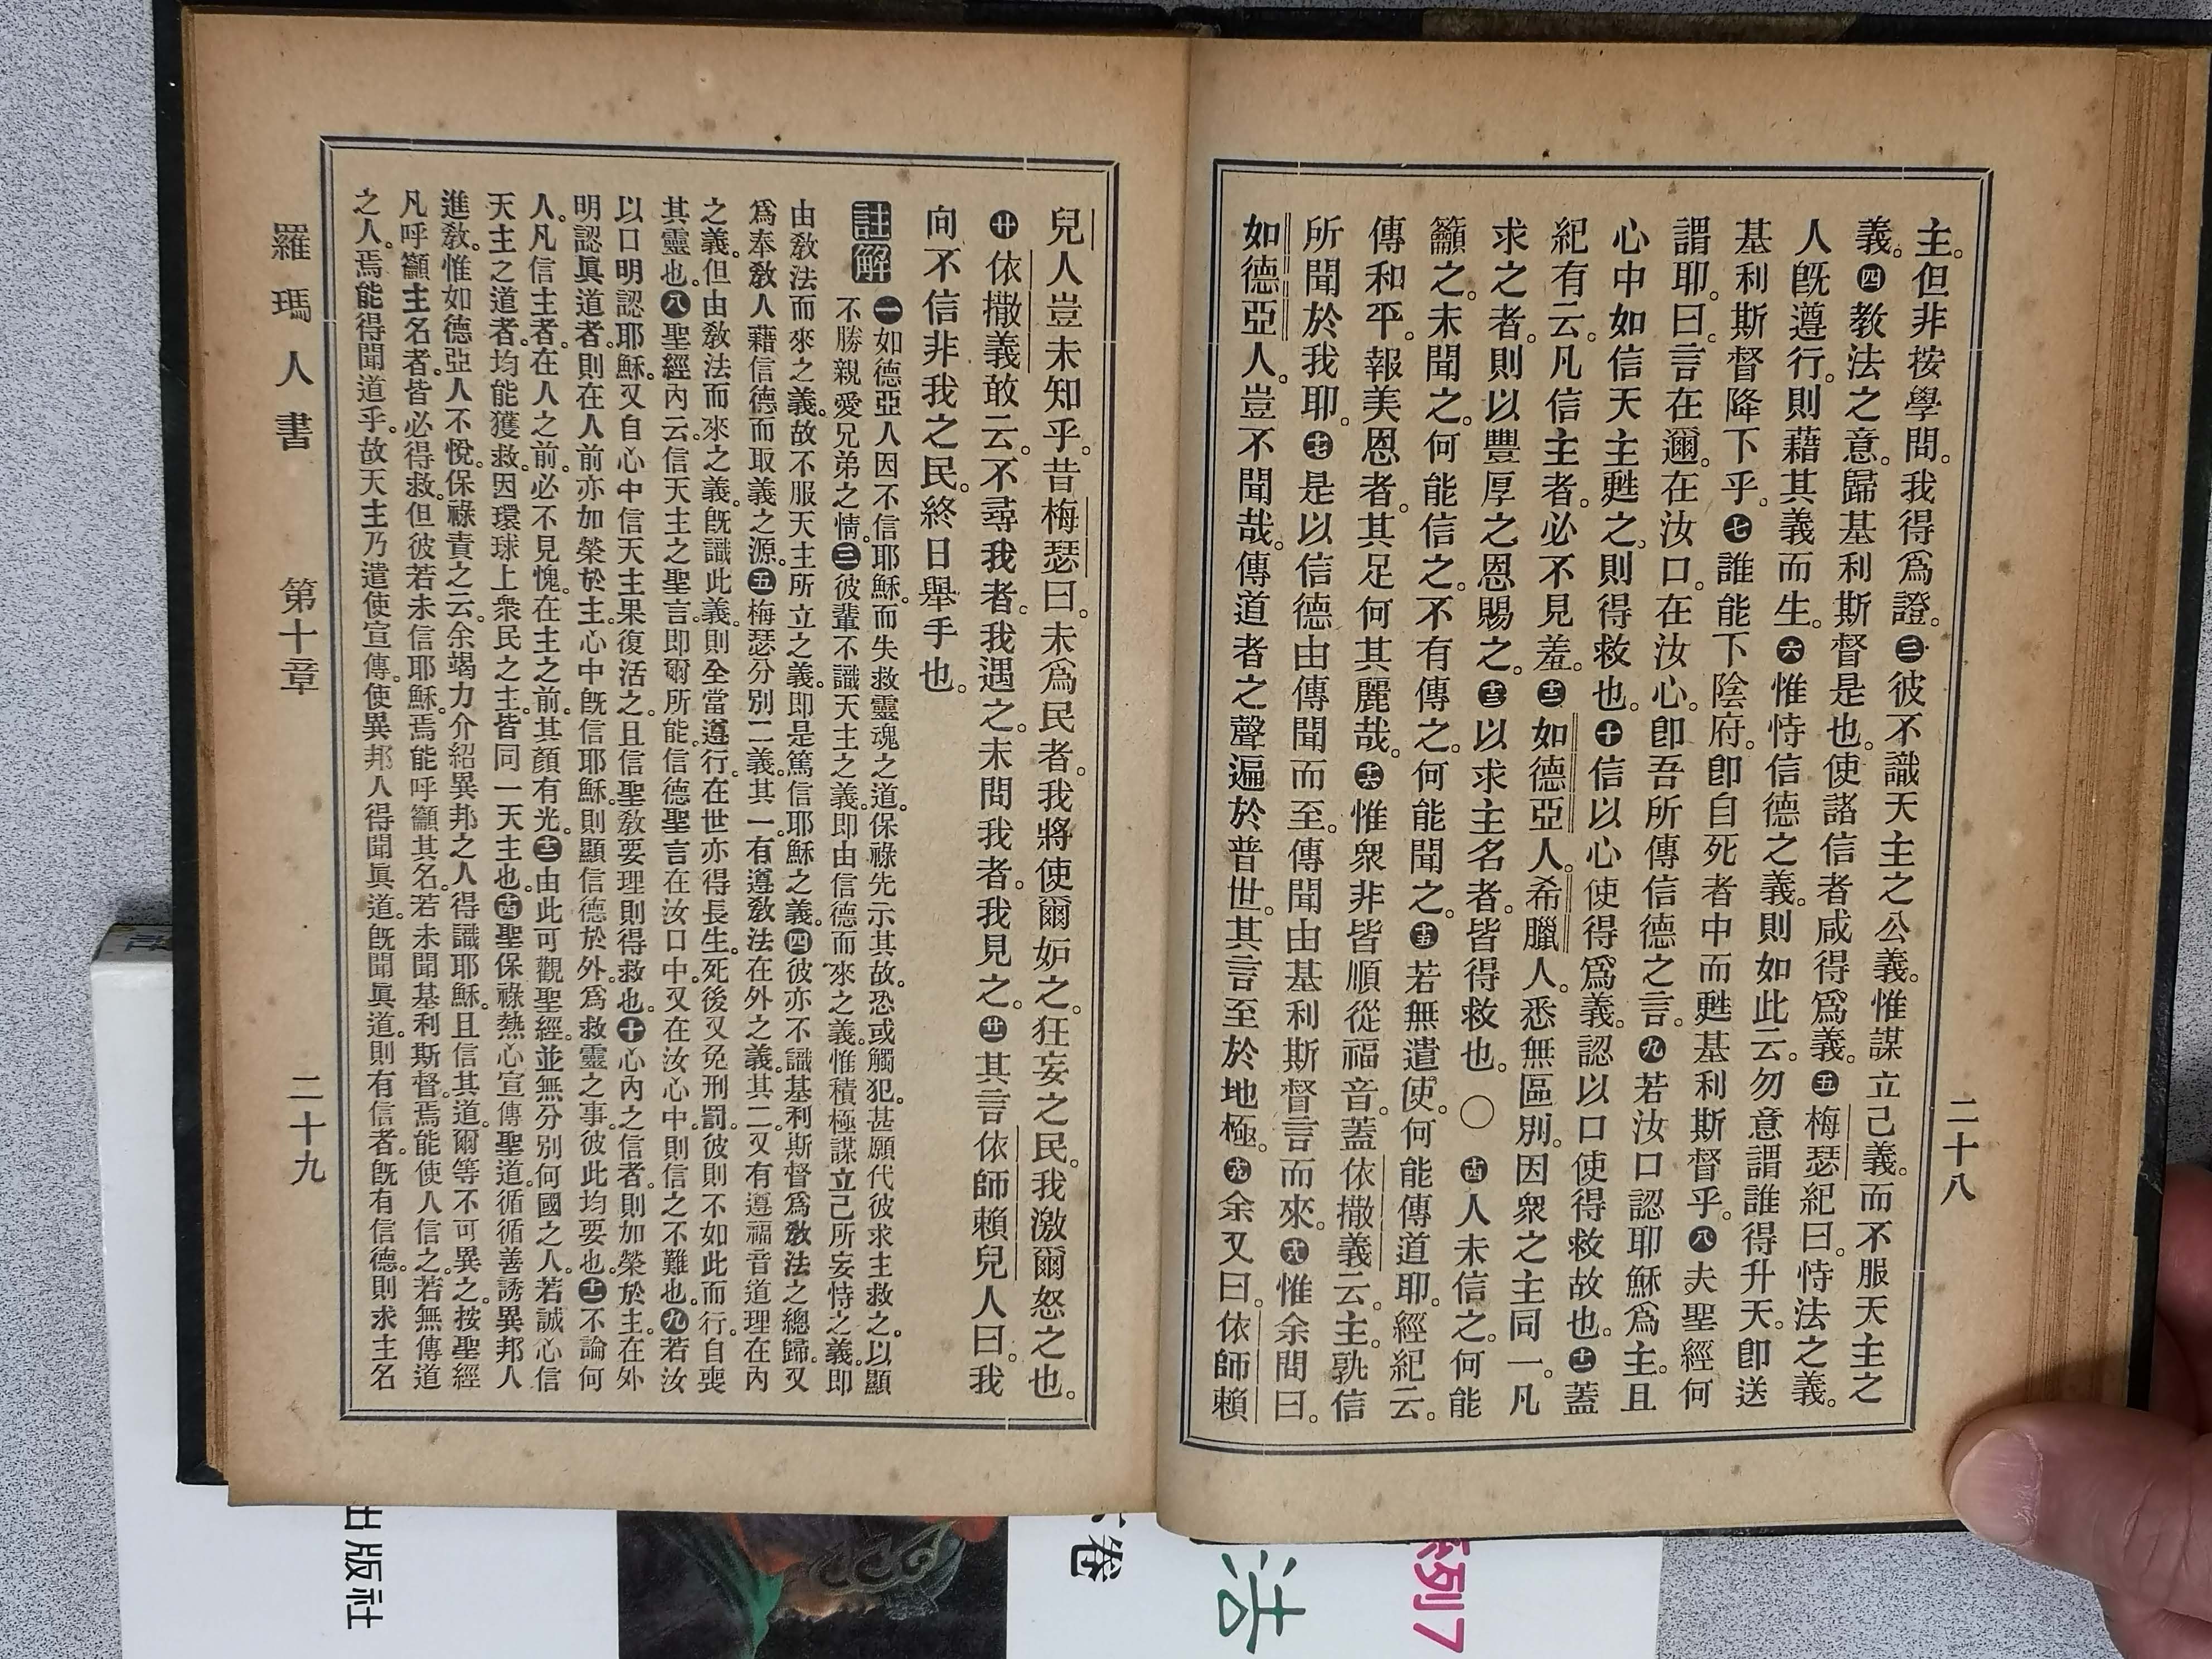 二十八
主。但非按學問。我得爲證。㊂彼不識天主之公義。惟謀立己義。而不服天主之
義。㊃教法之意。歸基利斯督是也。使諸信者咸得爲義。㊄梅瑟紀曰。恃法之義。
人旣遵行。則藉其義而生。㊅惟恃信德之義。則如此云。勿意謂誰得升天。卽送
基利斯督降下乎。㊆誰能下陰府。卽自死者中而甦基利斯督乎。㊇夫聖經何
謂耶。曰。言在邇。在汝口。在汝心。卽吾所傳信德之言。㊈若汝口認耶穌爲主。且
心中如信天主甦之。則得救也。㊉信以心使得爲義。認以口使得救故也。十一蓋
紀有云。凡信主者。必不見羞。十二如德亞人。希臘人。悉無區別。因衆之主同一。凡
求之者。則以豐厚之恩賜之。十三以求主名者。皆得救也。〇十四人未信之。何能
籲之。未聞之。何能信之。不有傳之。何能聞之。十五若無遣使。何能傳道耶。經紀云。
傳和平。報美恩者。其足何其麗哉。十六惟衆非皆順從福音。蓋依撒義云。主。孰信
所聞於我耶。十七是以信德由傳聞而至。傳聞由基利斯督言而來。十八惟余問曰。
如德亞人。豈不聞哉。傳道者之聲遍於普世。其言至於地極。十九余又曰。依師賴
兒人豈未知乎。昔梅瑟曰。未爲民者。我將使爾妒之。狂妄之民。我激爾怒之也。
廿依撒義敢云。不尋我者。我遇之。未問我者。我見之。廿一其言依師賴兒人曰。我
向不信非我之民。終日舉手也。
註解
㊀如德亞人因不信耶穌。而失救靈魂之道。保祿先示其故。恐或觸犯。甚願代彼求主救之。以顯
不勝親愛兄弟之情。㊂彼輩不識天主之義。卽由信德而來之義。惟積極謀立己所妄恃之義。卽
由敎法而來之義。故不服天主所立之義。卽是篤信耶穌之義。㊃彼亦不識基利斯督爲敎法之總歸。又
爲奉敎人藉信德而取義之源。㊄梅瑟分別二義。其一。有遵敎法在外之義。其二。又有遵福音道理在內
之義。但由敎法而來之義。旣識此義。則全當遵行。在世亦得長生。死後又免刑罰。彼則不如此而行。自喪
其靈也。㊇聖經內云。信天主之聖言。卽爾所能。信德聖言在汝口中。又在汝心中。則信之不難也。㊈若汝
以口明認耶穌。又自心中信天主果復活之。且信聖敎要理。則得救也。㊉心內之信者。則加榮於主。在外
明認眞道者。則在人前亦加榮於主。心中旣信耶穌。則顯信德於外。爲救靈之事。彼此均要也。十一不論何
人。凡信主者。在人之前。必不見愧。在主之前。其顏有光。十二由此可觀聖經。並無分別何國之人。若誠心信
天主之道者。均能獲救。因環球上衆民之主。皆同一天主也。十四聖保祿熱心宣傳聖道。循循善誘異邦人
進敎。惟如德亞人不悅。保祿責之云。余竭力介紹異邦之人。得識耶穌。且信其道。爾等不可異之。按聖經
凡呼籲主名者。皆必得救。但彼若未信耶穌。焉能呼籲其名。若未聞基利斯督。焉能使人信之。若無傳道
之人。焉能得聞道乎。故天主乃遣使宣傳。使異邦人得聞眞道。旣聞眞道。則有信者。旣有信德。則求主名
羅瑪人書　第十章　二十九
出版社
卷
法
系列7